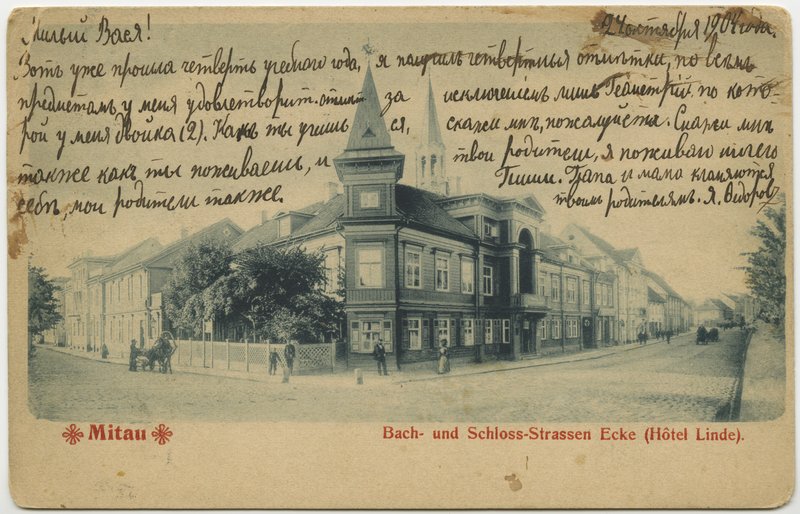 Милый Вася!
24 октября 1904 года.
Вотъ уже прошла четверть учебнаго года, я получилъ четвертныя отмѣтки, по всѣмъ
предметамъ у меня удовлетворит. отмѣт. за исключеніемъ лишь Геометріи, по кото-
рой у меня двойка (2). Какъ ты учишься, скажи мнѣ, пожалуйста. Скажи мнѣ
также какъ ты поживаешь, и твои родители, я поживаю ничего
себѣ, мои родители также. Пиши. Папа и мама кланяются
твоимъ родителямъ. Я. Ѳедоров
Mitau
Bach- und Schloss-Strassen Ecke (Hôtel Linde).